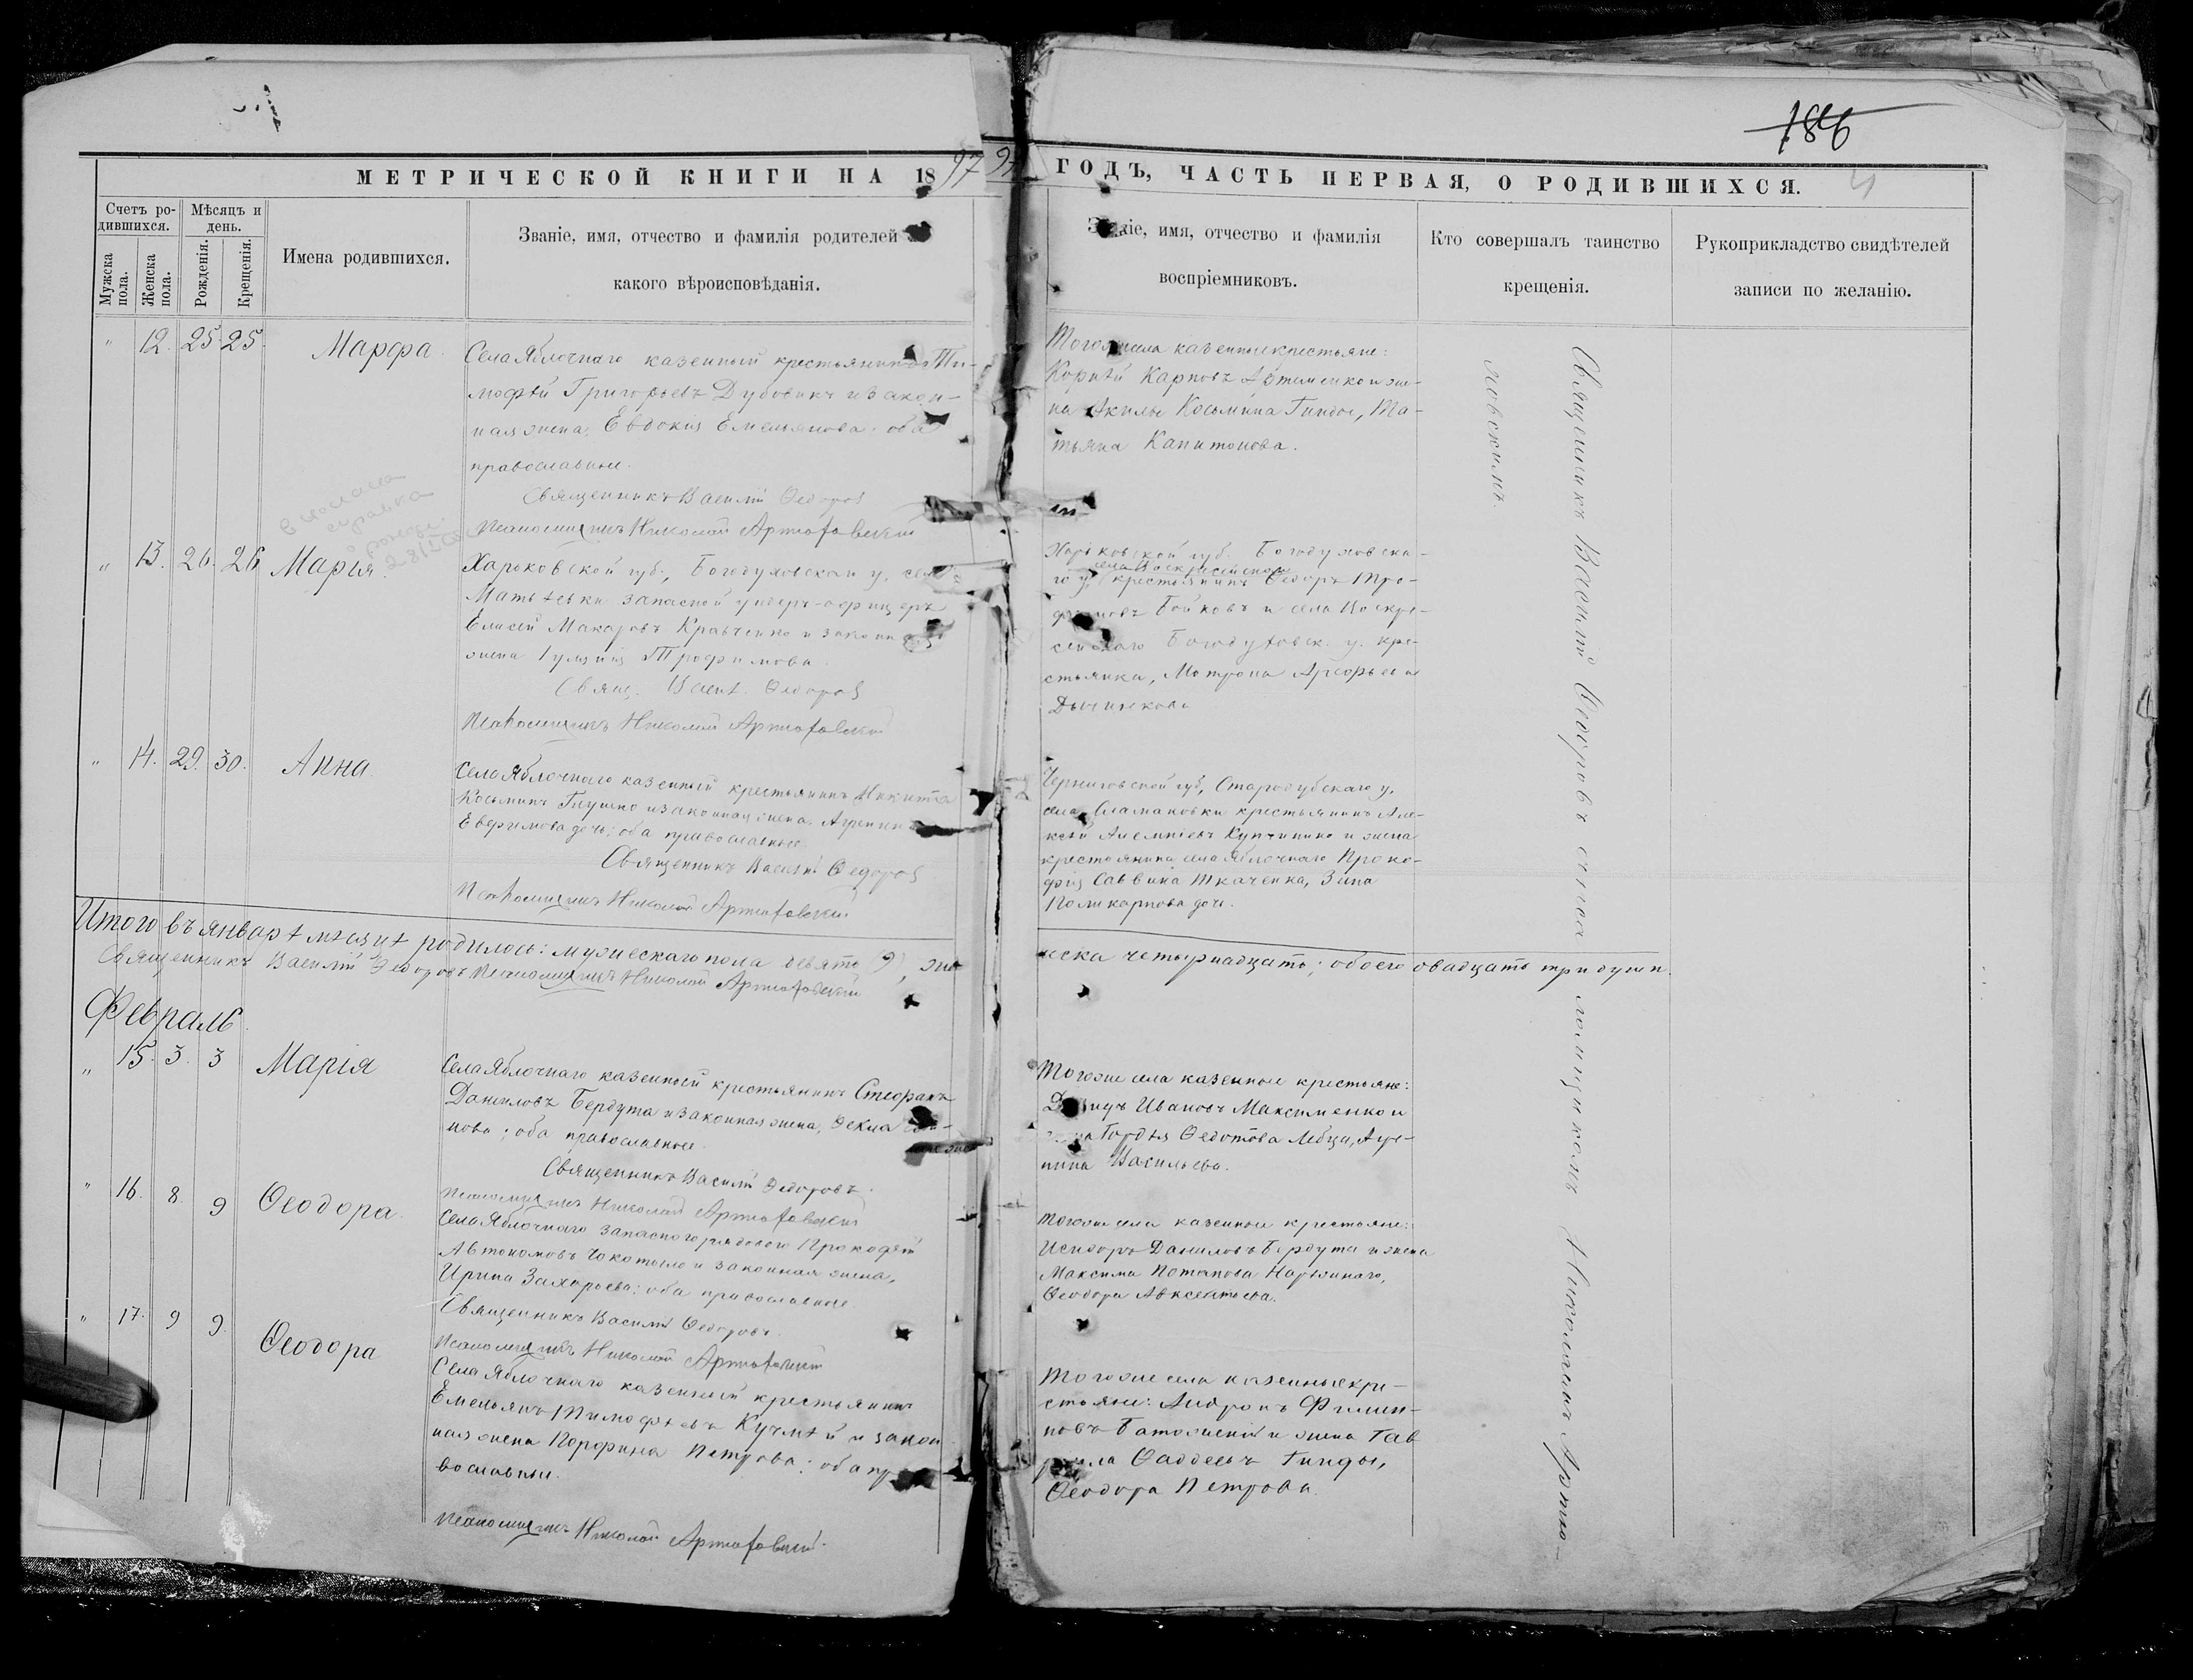 186
4
МЕТРИЧЕСКОЙ КНИГИ НА 1897
97 ГОДЪ, ЧАСТЬ ПЕРВАЯ, О РОДИВШИХСЯ.
Счетъ ро-
дившихся.
Мужска
пола.
Женска
пола.
Мѣсяцъ и
день.
Рожденія.
Крещенія.
Имена родившихся.
Званіе, имя, отчество и фамилія родителей
какого вѣроисповѣданія.
Званіе, имя, отчество и фамилія
воспріемниковъ.
Кто совершалъ таинство
крещенія.
Рукоприкладство свидѣтелей
записи по желанію.
" 12. 25. 25. Марфа.
Села Яблочнаго казенный крестьянинъ Ти-
мофѣй Григорьевъ Дубовикъ и закон-
ная жена Евдокія Емельянова; оба
православные.
Священникъ Василій Федоровъ
Псаломщикъ Николай Артюховскій
Тогоже села казенные крестьяне:
Корнѣй Карповъ Артеменко и же-
на Акилы Косьмина Гинды, Та-
тьяна Капитонова.
" 13. 26. 26 Марія.
справка
Харьковской губ., Богодуховскаго у. села
Матвѣевки запасной унтеръ-офицеръ
Елисей Макаровъ Кравченко и законная
жена Трофимова.
Свящ. Васил. Федоровъ
Псаломщикъ Николай Артюховскій
Харьковской губ. Богодуховска-
го у. села Воскресенскаго крестьянинъ Федоръ Тро-
фимовъ Бойковъ и села Воскре-
сенскаго Богодуховск. у. кре-
стьянка, Матрона
" 14. 29. 30. Анна.
Села Яблочнаго казенный крестьянинъ Никита
Косьминъ Глушко и законная жена Агрипина
Евфимова дочь; оба православные.
Священникъ Василій Федоровъ
Псаломщикъ Николай Артюховскій
Черниговской губ, Стародубскаго у.
села крестьянинъ Але-
ксѣй и жена
крестьянина села Яблочнаго Проко-
фія Саввина Ткаченка,
Поликарпова дочь.
Итого въ январѣ мѣсяцѣ родилось: мужескаго пола девять (9), жен-
ска четырнадцать; обоего двадцать три души.
Священникъ Василій Федоровъ Псаломщикъ Николай Артюховскій
Февраль.
" 15. 3. 3 Марія
Села Яблочнаго казенный крестьянинъ Стефанъ
Даниловъ Бердута и законная жена, Ѳекла
нова; оба православные.
Священникъ Василій Федоровъ.
Псаломщикъ Николай Артюховскій
Тогоже села казенные крестьяне:
Давидъ Ивановъ Максименко и
жена Гордѣя Ѳедотова Лебца, Агри-
пина Васильева.
" 16. 8. 9 Ѳеодора.
Села Яблочнаго запаснаго рядоваго Прокофій
Автономовъ Чокотыло и законная жена,
Ирина Захарьева; оба православные.
Священникъ Василій Федоровъ.
Псаломщикъ Николай Артюховскій
Тогоже села казенные крестьяне:
Исидоръ Даниловъ Бердута и жена
Максима Потапова Нарѣжнаго,
Ѳеодора Авксентьева.
" 17. 9 9. Ѳеодора
Села Яблочнаго казенный крестьянинъ
Емельянъ Тимофѣевъ Кучмѣй и закон
ная жена Порфина Петрова; оба пра
вославные.
Псаломщикъ Николай Артюховскій
Тогоже села казенные кре-
стьяне: Андронъ Филип-
повъ и жена Гав
рила Ѳаддеевъ Гинды,
Ѳеодора Петрова.
Священникъ Василій Федоровъ съ псаломщикомъ Николаемъ Артю-
ховскимъ.